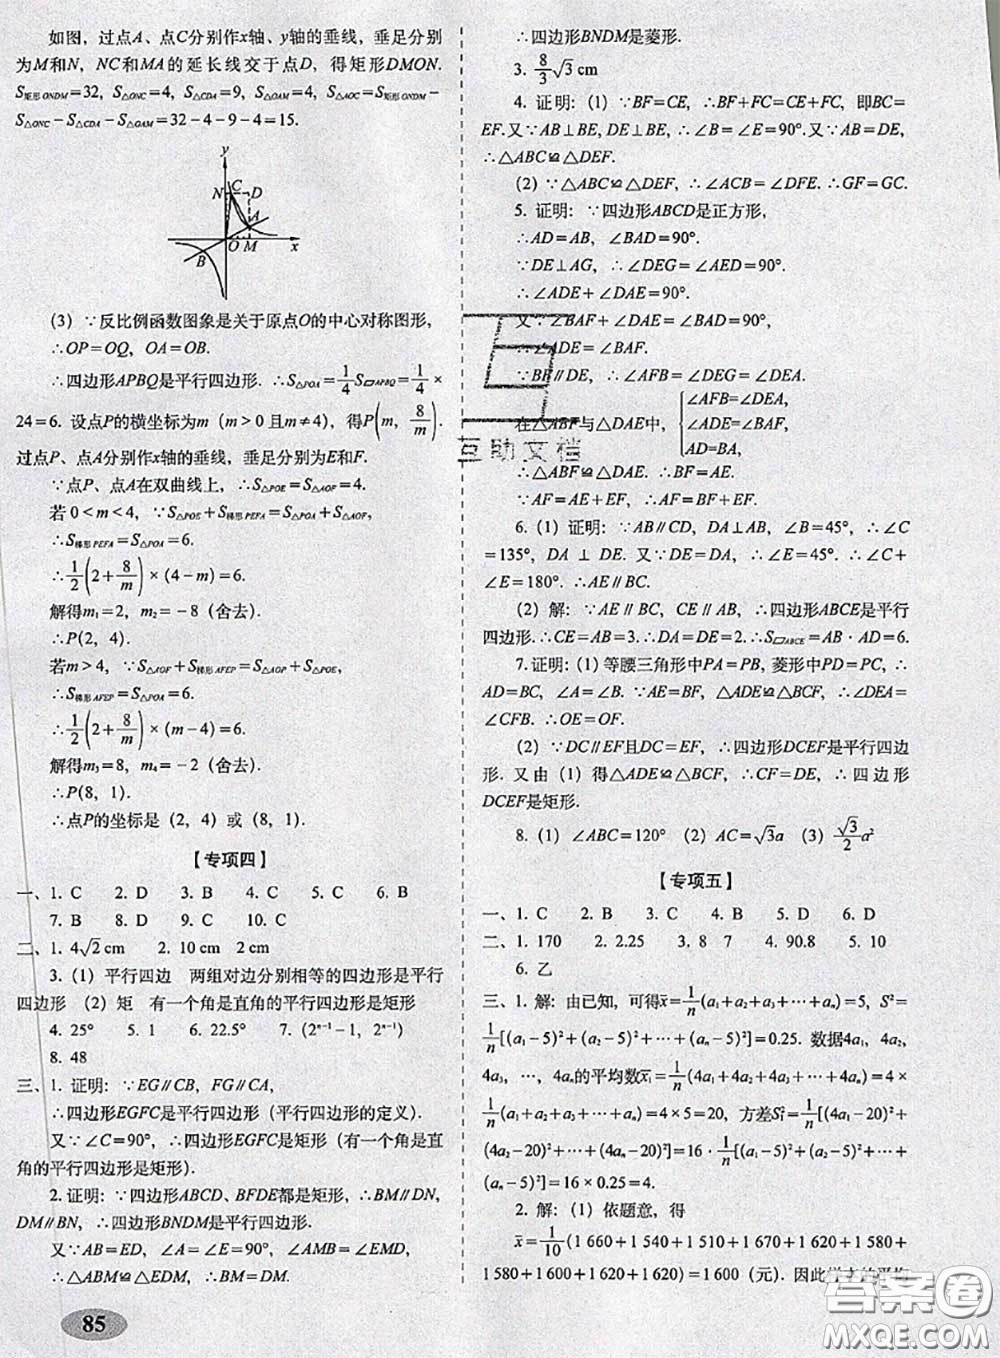 如图，过点A、点C分别作x轴、y轴的垂线，垂足分别
为M和N，NC和MA的延长线交于点D，得矩形DMON.
S矩形ONDM=32，S△ONC=4，S△CDA=9，S△OAM=4，S△AOC=S矩形ONDM−
S△ONC−S△CDA−S△OAM=32−4−9−4=15.
y
N C D
A
O M x
B
(3) ∵反比例函数图象是关于原点O的中心对称图形，
∴OP=OQ，OA=OB.
∴四边形APBQ是平行四边形. ∴S△POA=1/4 S▱APBQ=1/4×
24=6. 设点P的横坐标为m（m>0且m≠4），得P(m，8/m).
过点P、点A分别作x轴的垂线，垂足分别为E和F.
∵点P、点A在双曲线上，∴S△POE=S△AOF=4.
若0<m<4，∵S△POE+S梯形PEFA=S△POA+S△AOF，
∴S梯形PEFA=S△POA=6.
∴1/2(2+8/m)×(4−m)=6.
解得m₁=2，m₂=−8（舍去）.
∴P(2，4).
若m>4，∵S△AOF+S梯形AFEP=S△AOP+S△POE，
∴S梯形AFEP=S△POA=6.
∴1/2(2+8/m)×(m−4)=6.
解得m₃=8，m₄=−2（舍去）.
∴P(8，1).
∴点P的坐标是（2，4）或（8，1）.
【专项四】
一、1. C 2. D 3. B 4. C 5. C 6. B
7. B 8. D 9. C 10. C
二、1. 4√2 cm 2. 10 cm 2 cm
3.（1）平行四边 两组对边分别相等的四边形是平行
四边形 （2）矩 有一个角是直角的平行四边形是矩形
4. 25° 5. 1 6. 22.5° 7. (2ⁿ⁻¹−1，2ⁿ⁻¹)
8. 48
三、1. 证明：∵EG∥CB，FG∥CA，
∴四边形EGFC是平行四边形（平行四边形的定义）.
又∵∠C=90°，∴四边形EGFC是矩形（有一个角是直
角的平行四边形是矩形）.
2. 证明：∵四边形ABCD、BFDE都是矩形，∴BM∥DN，
DM∥BN，∴四边形BNDM是平行四边形.
又∵AB=ED，∠A=∠E=90°，∠AMB=∠EMD，
∴△ABM≌△EDM，∴BM=DM.
85
∴四边形BNDM是菱形.
3. 8/3 √3 cm
4. 证明：(1) ∵BF=CE，∴BF+FC=CE+FC，即BC=
EF. 又∵AB⊥BE，DE⊥BE，∴∠B=∠E=90°. 又∵AB=DE，
∴△ABC≌△DEF.
(2) ∵△ABC≌△DEF，∴∠ACB=∠DFE. ∴GF=GC.
5. 证明：∵四边形ABCD是正方形，
∴AD=AB，∠BAD=90°.
∵DE⊥AG，∴∠DEG=∠AED=90°.
∴∠ADE+∠DAE=90°.
又∵∠BAF+∠DAE=∠BAD=90°，
∴∠ADE=∠BAF.
∵BF∥DE，∴∠AFB=∠DEG=∠AED.
在△ABF与△DAE中，{∠AFB=∠DEA，
∠ADE=∠BAF，
AD=BA，
∴△ABF≌△DAE.
∴BF=AE.
∵AF=AE+EF，∴AF=BF+EF.
6. (1) 证明：∵AB∥CD，DA⊥AB，∠B=45°，∴∠C
=135°，DA⊥DE. 又∵DE=DA，∴∠E=45°. ∴∠C+
∠E=180°. ∴AE∥BC.
(2) 解：∵AE∥BC，CE∥AB，∴四边形ABCE是平行
四边形. ∴CE=AB=3. ∴DA=DE=2. ∴S▱ABCE=AB·AD=6.
7. 证明：(1) 等腰三角形中PA=PB，菱形中PD=PC，∴
AD=BC，∠A=∠B. ∵AE=BF，△ADE≌△BCF，∴∠DEA=
∠CFB. ∴OE=OF.
(2) ∵DC∥EF且DC=EF，∴四边形DCEF是平行四边
形. 又由（1）得△ADE≌△BCF，∴CF=DE，∴四边形
DCEF是矩形.
8. (1) ∠ABC=120° (2) AC=√3a (3) √3/2 a²
【专项五】
一、1. C 2. B 3. C 4. D 5. A 6. D
二、1. 170 2. 2.25 3. 8 7 4. 90.8 5. 10
6. 乙
三、1. 解：由已知，可得x̄=1/n(a₁+a₂+⋯+aₙ)=5，S²=
1/n[(a₁−5)²+(a₂−5)²+⋯+(aₙ−5)²]=0.25. 数据4a₁，4a₂，
4a₃，⋯，4aₙ的平均数x̄₁=1/n(4a₁+4a₂+4a₃+⋯+4aₙ)=4×
1/n(a₁+a₂+⋯+aₙ)=4×5=20，方差S₁²=1/n[(4a₁−20)²+
(4a₂−20)²+⋯+(4aₙ−20)²]=16·1/n[(a₁−5)²+(a₂−5)²+⋯+
(aₙ−5)²]=16×0.25=4.
2. 解：(1) 依题意，得
x̄=1/10(1 660+1 540+1 510+1 670+1 620+1 580+
1 580+1 600+1 620+1 620)=1 600（元）. 因此样本的平均
互助文档
答案圈
MXQE.COM